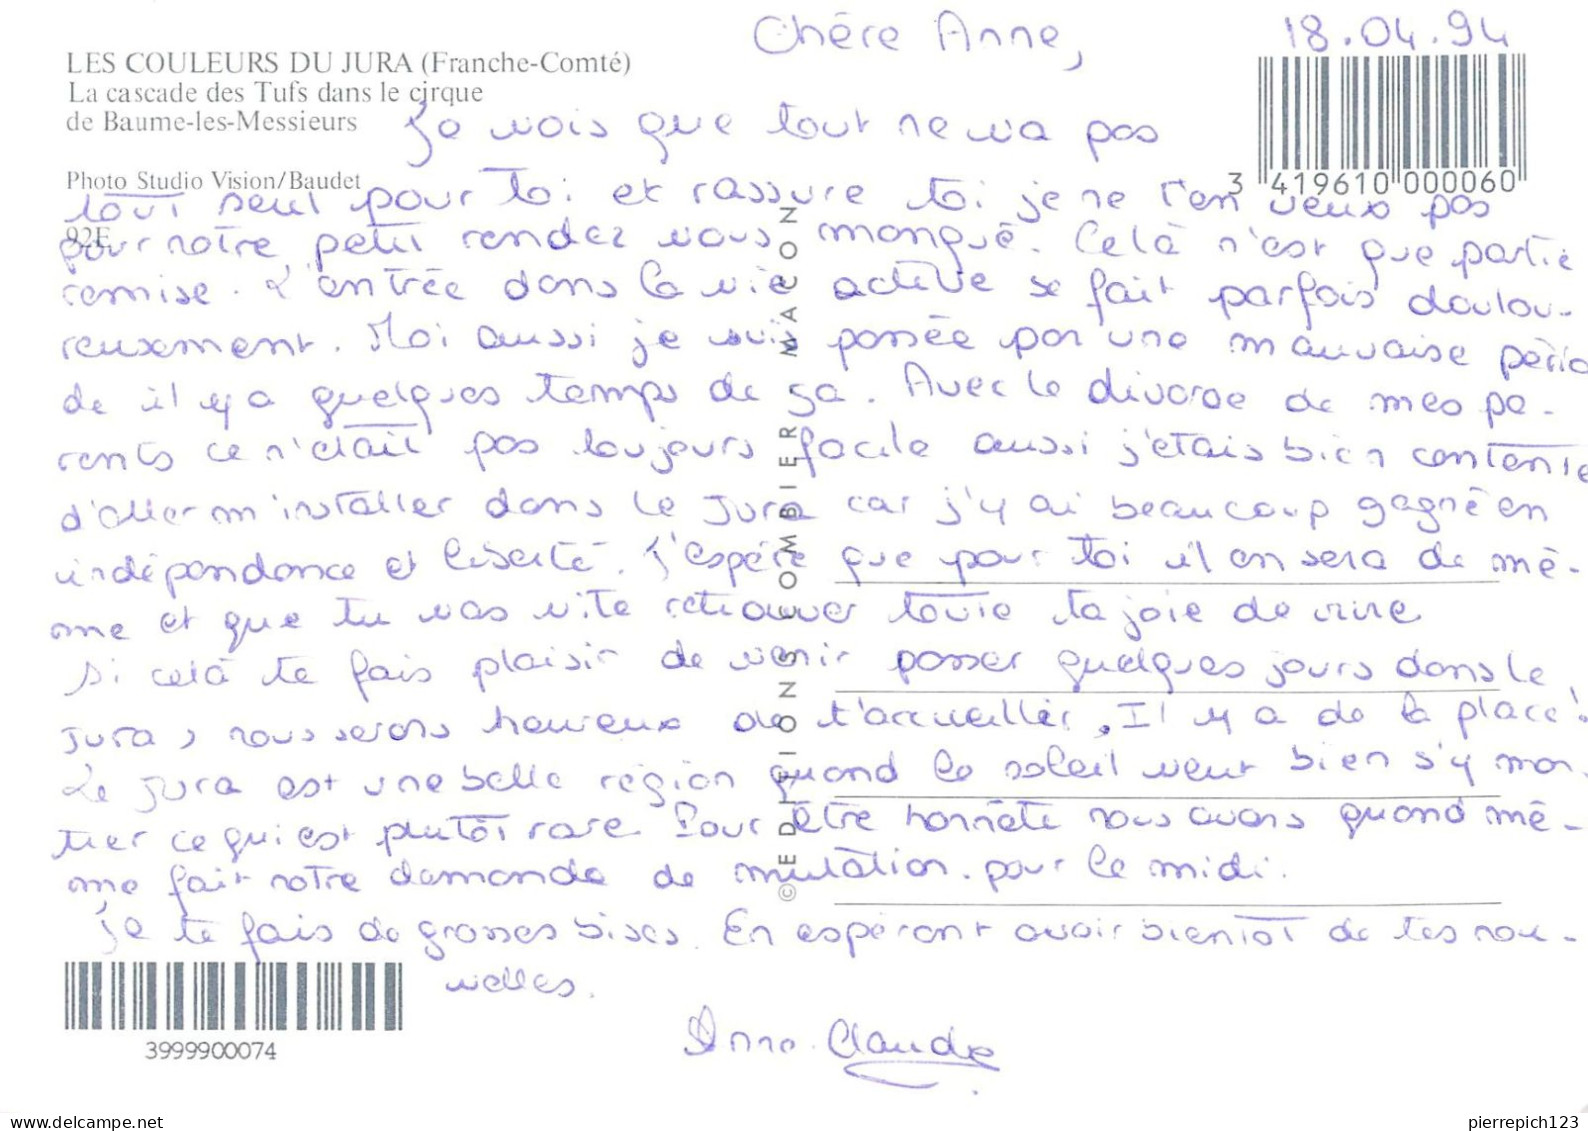 Chère Anne,
18.04.94
LES COULEURS DU JURA (Franche-Comté)
La cascade des Tufs dans le cirque
de Baume-les-Messieurs
Photo Studio Vision/Baudet
92E
3 419610 000060
Je vois que tout ne va pas
tout seul pour toi et rassure toi je ne t'en veux pas
pour notre petit rendez vous manqué. Celà n'est que partie
remise. L'entrée dans la vie active se fait parfois doulou-
reusement. Moi aussi je suis passée par une mauvaise pério
de il y a quelques temps de ça. Avec le divorce de mes pa-
rents ce n'était pas toujours facile aussi j'étais bien contente
d'aller m'installer dans le Jura car j'y ai beaucoup gagné en
indépendance et liberté. J'espère que pour toi il en sera de mê-
me et que tu vas vite retrouver toute ta joie de vivre
Si celà te fais plaisir de venir passer quelques jours dans le
Jura, nous serons heureux de t'accueillir. Il y a de la place!
Le Jura est une belle région quand le soleil veut bien s'y mon-
trer ce qui est plutôt rare. Pour être honnête nous avons quand mê-
me fait notre demande de mutation pour le midi.
Je te fais de grosses bises. En espérant avoir bientôt de tes nou-
velles.
Anne-Claude
© EDITIONS COMBIER MACON
3999900074
www.delcampe.net
pierrepich123